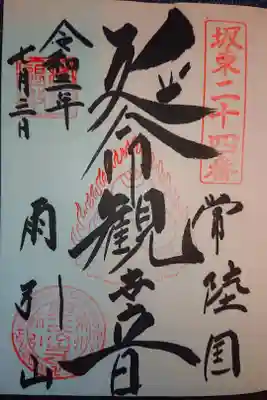 坂東二十四番
常陸国
延命観世音
雨引山
令和二年
七月二日